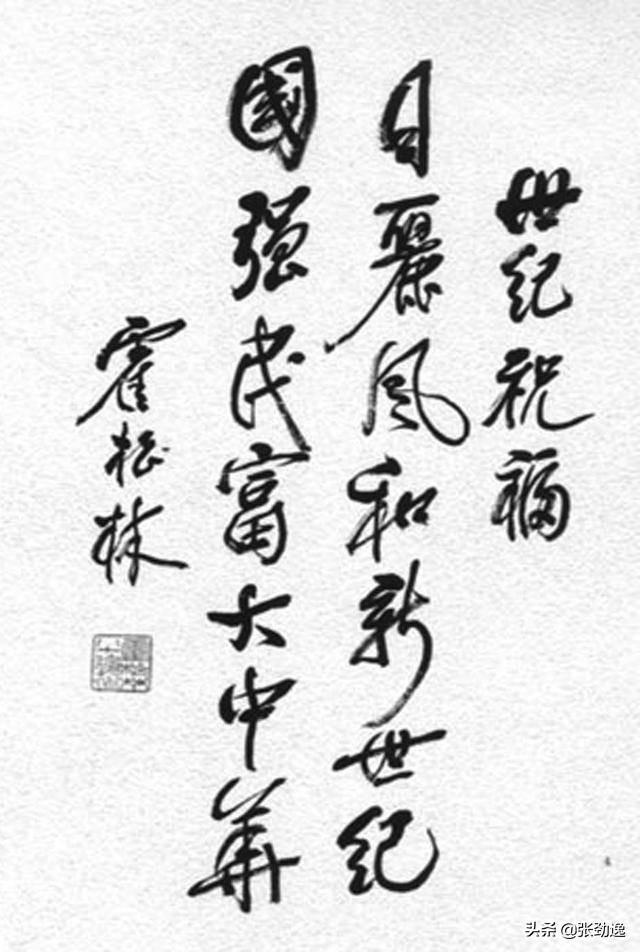 世纪祝福
日麗风和新世纪
國强民富大中華
霍松林
头条 @张劲逸